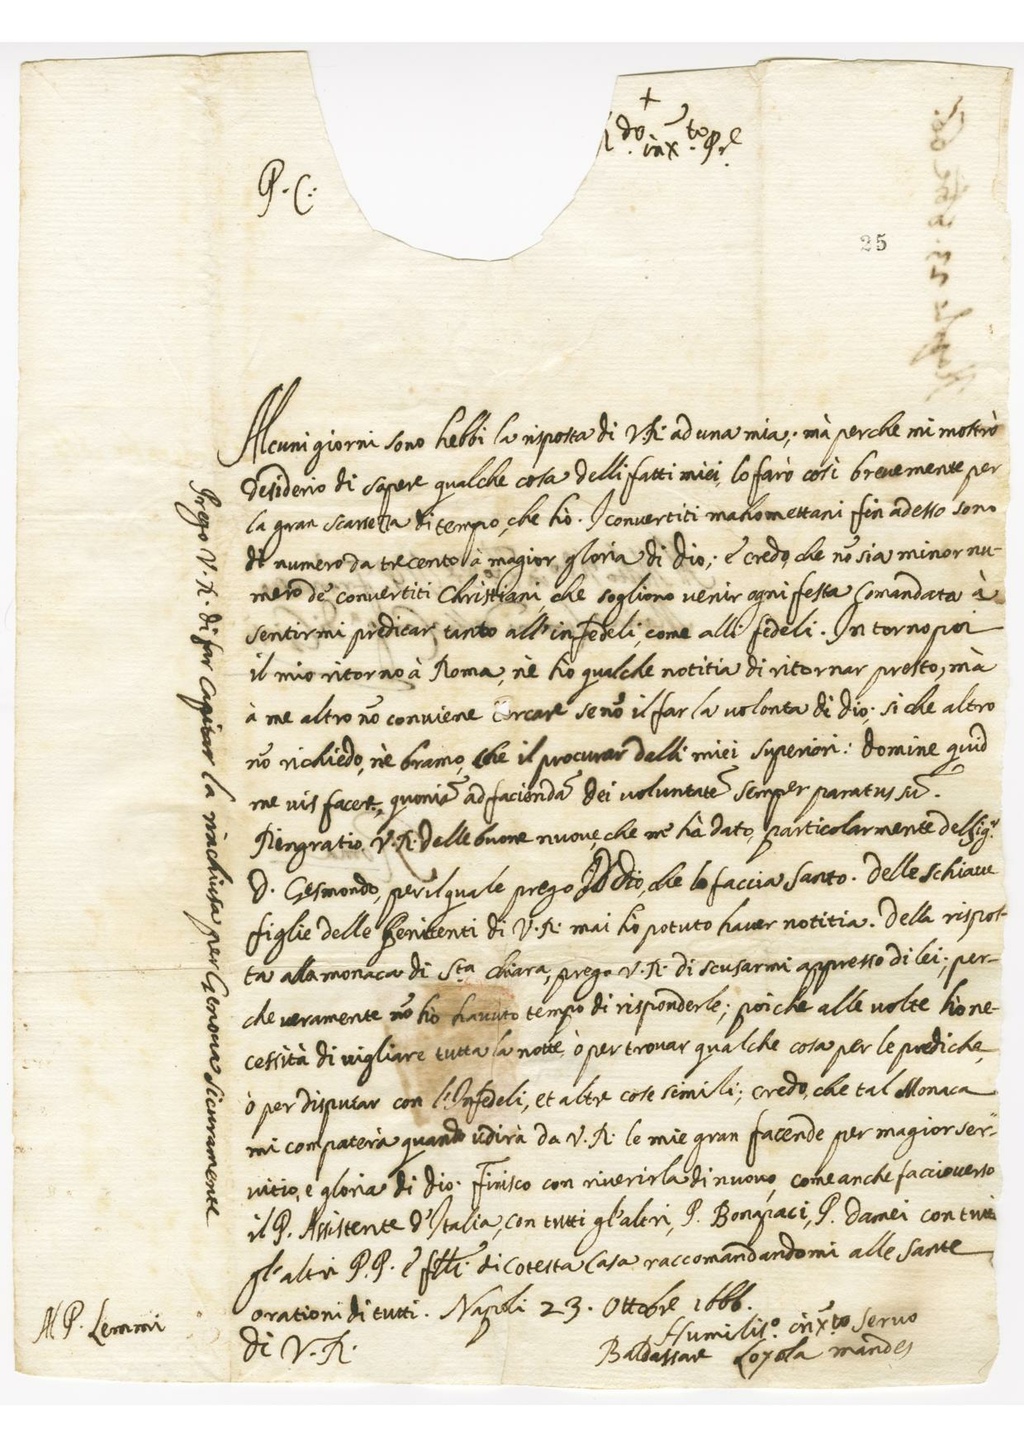 +
R do. in X.to P.re
P. C.
25
Alcuni giorni sono hebbi la risposta di V.R. ad una mia; mà perche mi mostrò
desiderio di sapere qualche cosa delli fatti miei, lo farò così brevemente per
la gran scarsezza di tempo, che hò. I convertiti mahomettani fin adesso sono
di numero da trecento à magior gloria di Dio; e credo, che nõ sia minor nu-
mero de convertiti Christiani, che sogliono venir ogni festa Comandata à
sentirmi predicar tanto all'infedeli, come alli fedeli. Intorno poi
il mio ritorno à Roma, nè hò qualche notitia di ritornar presto, mà
à me altro nõ conviene cercare se nõ il far la volontà di Dio; si che altro
nõ richiedo, nè bramo, che il procurar dalli miei superiori: Domine quid
me vis facere, quoniã ad faciendã Dei voluntatẽ semper paratus sũ.
Riengratio V.R. delle buone nuove, che me hà dato, particolarmente del Sig.r
D. Gesmondo, per il quale prego Iddio, che lo faccia Santo. Delle schiave
figlie delle Penitenti di V.R. mai hò potuto haver notitia. Della rispos-
ta alla monaca di S.ta Chiara, prego V.R. di scusarmi appresso di lei; per-
che veramente nõ hò havuto tempo di risponderle; poiche alle volte hò ne-
cessità di vigliare tutta la notte, ò per trovar qualche cosa per le prediche,
ò per disputar con l'Infedeli, et altre cose simili; credo, che tal Monaca
mi compaterà quando udirà da V.R. le mie gran facende per magior ser-
vitio, e gloria di Dio. Finisco con riverirla di nuovo, come anche faccio verso
il P. Assistente d'Italia, con tutti gl'altri, P. P. Damei con tutti
gl'altri P.P. e flli di cotesta Casa raccomandandomi alle Sante
orationi di tutti. Napoli 23. Ottobre 1666.
di V.R.
Humiliss.o in X.to Servo
Baldassare Loyola Mandes
Al P. Lemmi
Prego V.R. di far Capitar la rinchiusa per Genova sicuramente